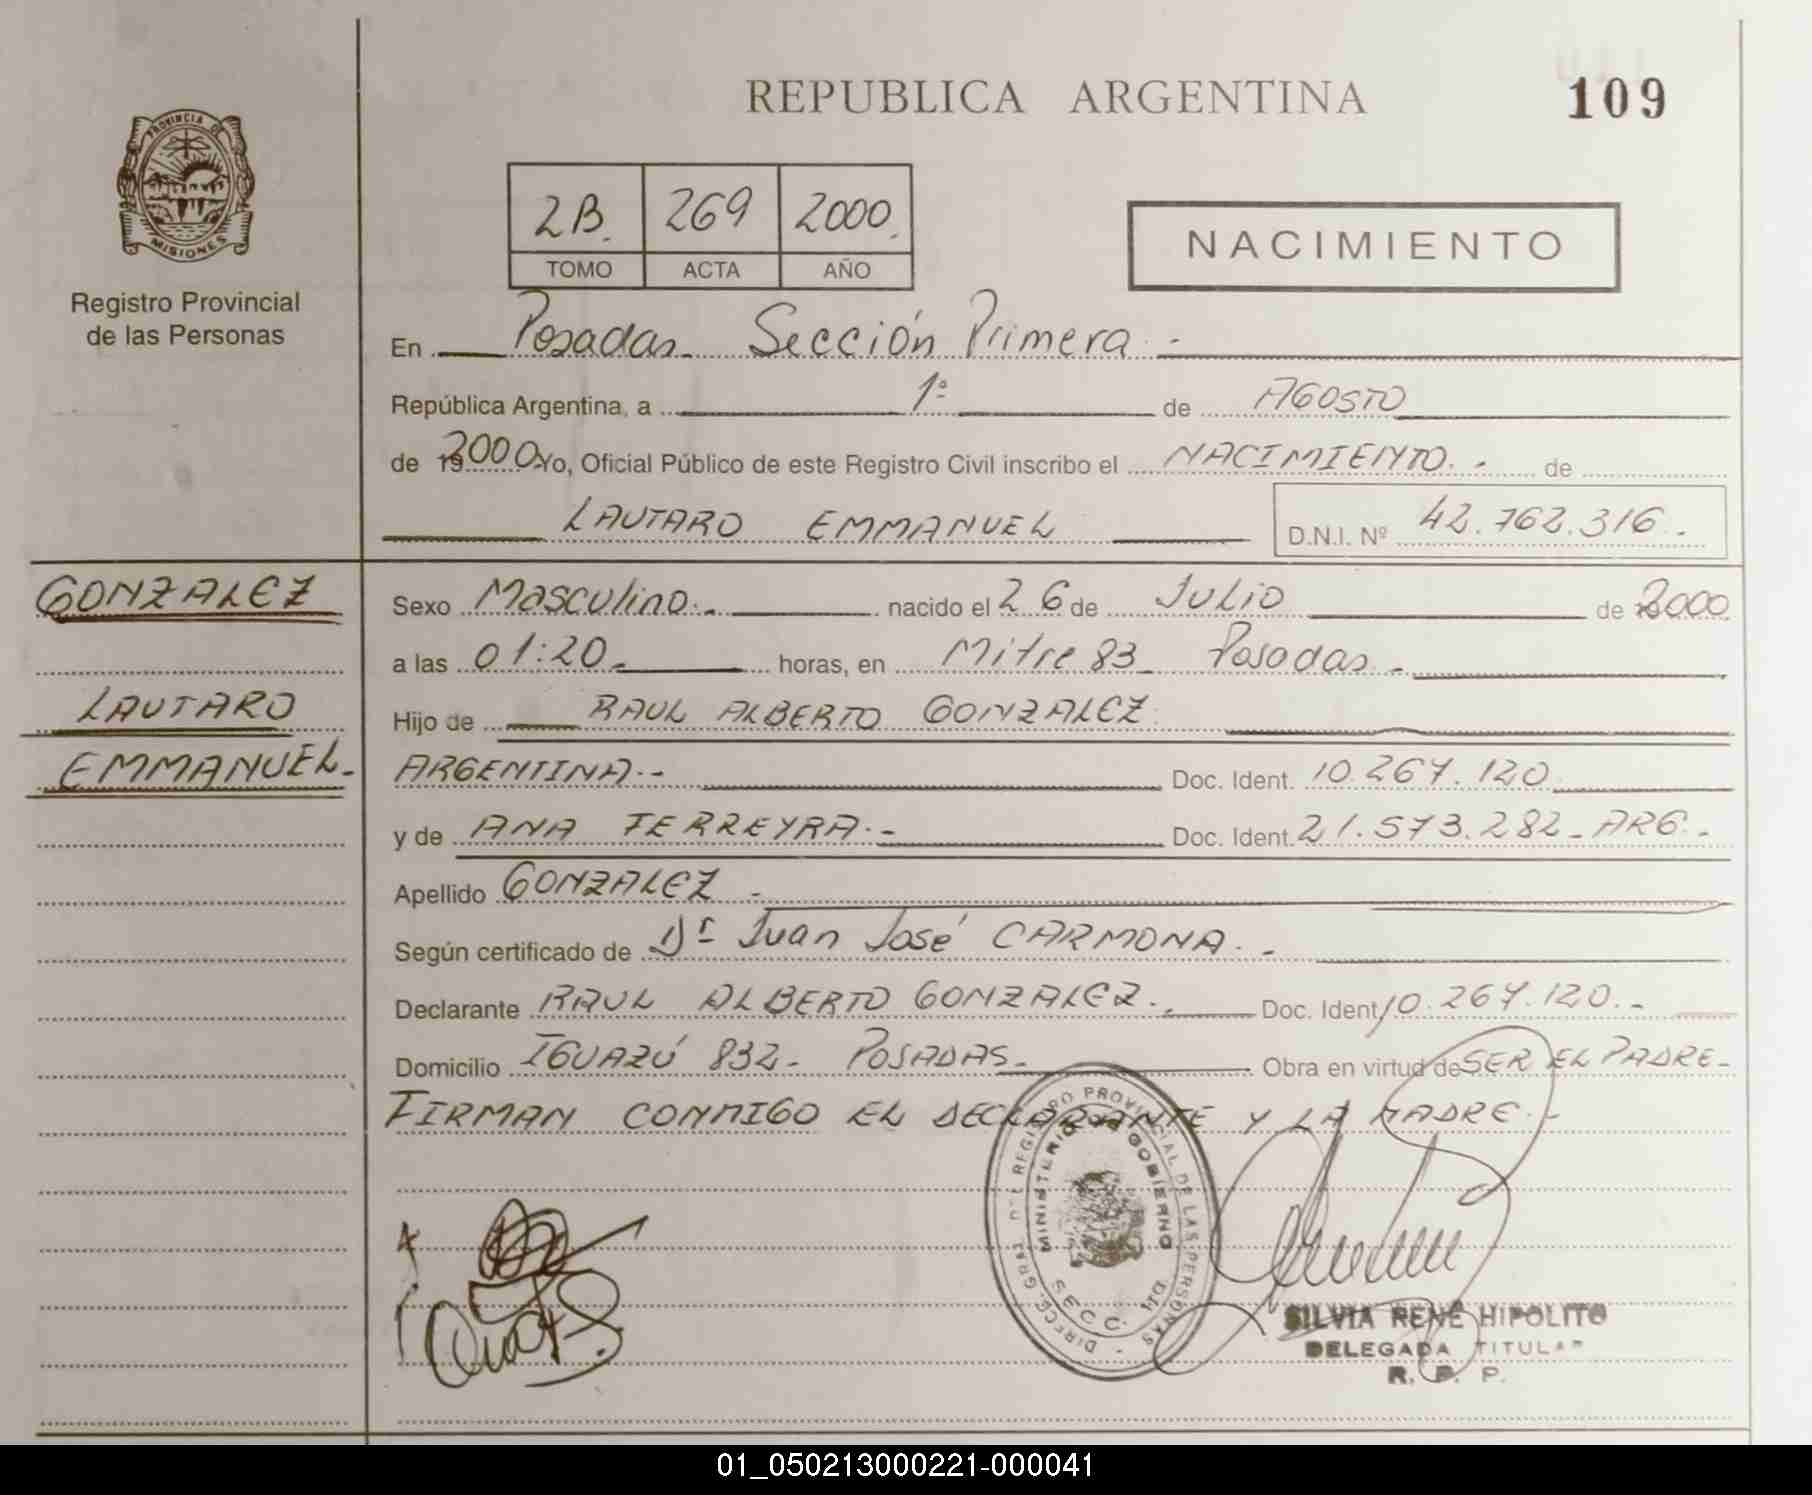 REPUBLICA ARGENTINA
109
PROVINCIA DE
MISIONES
Registro Provincial
de las Personas
2B. 269 2000.
TOMO ACTA AÑO
NACIMIENTO
En Posadas Sección Primera -
República Argentina, a 1º de AGOSTO
de 2000 Yo, Oficial Público de este Registro Civil inscribo el NACIMIENTO. - de
LAUTARO EMMANUEL D.N.I. Nº 42.762.316.-
GONZALEZ
LAUTARO
EMMANUEL-
Sexo Masculino.- nacido el 26 de Julio de 2000
a las 01:20 horas, en Mitre 83 - Posadas -
Hijo de RAUL ALBERTO GONZALEZ
ARGENTINA.- Doc. Ident. 10.267.120
y de ANA FERREYRA.- Doc. Ident. 21.573.282 - ARG.-
Apellido GONZALEZ -
Según certificado de Dr Juan José CARMONA. -
Declarante RAUL ALBERTO GONZALEZ. Doc. Ident. 10.267.120.-
Domicilio IGUAZÚ 832 - POSADAS - Obra en virtud de SER EL PADRE -
FIRMAN CONMIGO EL DECLARANTE Y LA MADRE.-
DIRECC. GRAL. DEL REGISTRO PROVINCIAL DE LAS PERSONAS
MINISTERIO DE GOBIERNO
SECC.
SILVIA RENÉ HIPOLITO
DELEGADA TITULAR
R. P. P.
01_050213000221-000041